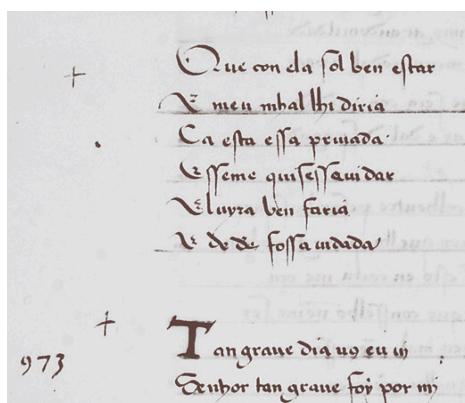 Que con ela sol ben estar
E meu mhal lhi diria
Ca esta essa priuada.
E sseme quisessauidar
E luyra ben faria
E de de fossa uidada
Tan graue dia uꝯ eu ui
973
Senhor tan graue foy por mj